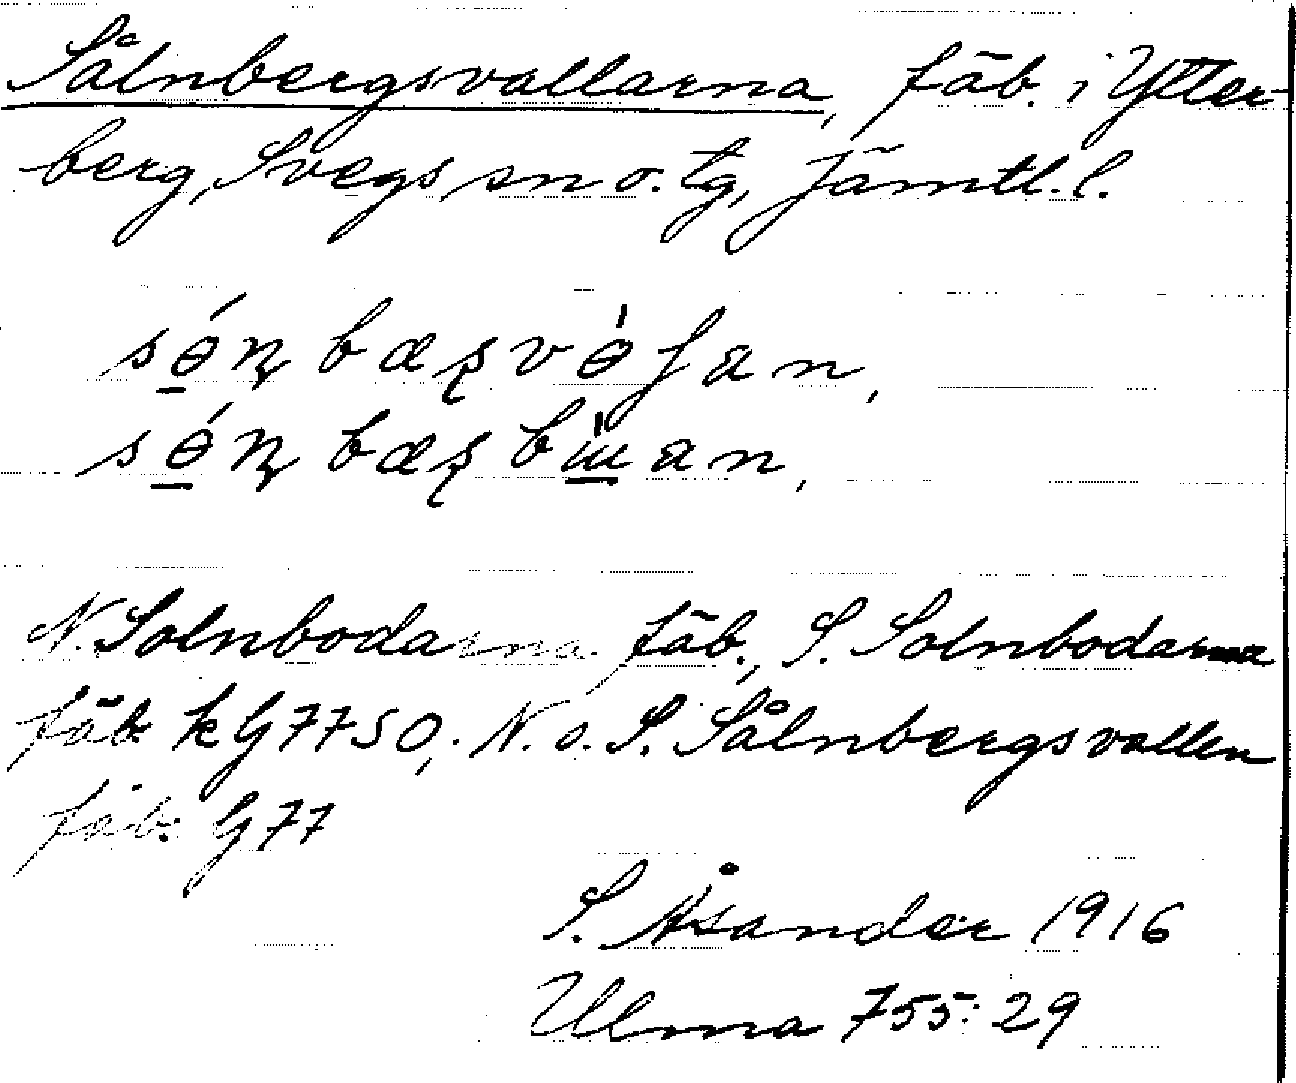 Sålnbergsvallarna, fäb. i Ytter-
berg, Svegs sn o. tg, Jämtl. l.
sɵ́n̡bæʂvɵ̀ʃan,
sɵ́n̡bæʂbɯ̀an,
N. Solnbodarna fäb., S. Solnbodarna
fäb. kG 77 SO, N. o. S. Sålnbergsvallen
fäb. G 77
S. Åsander 1916
Ulma 755:29